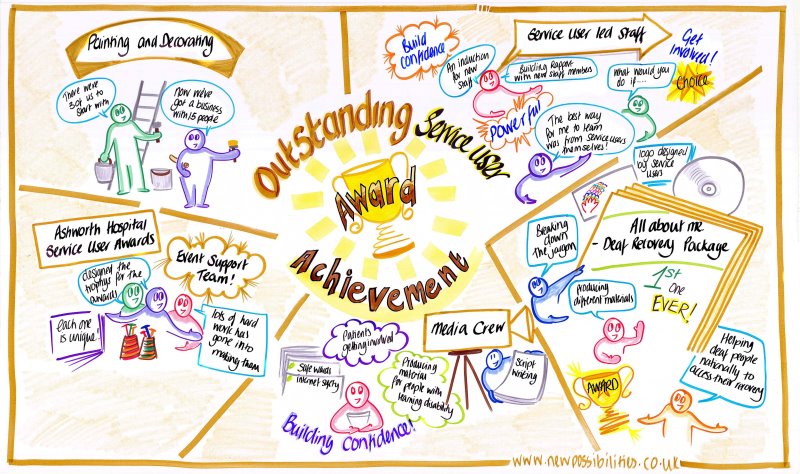 Painting and Decorating
There were
3 of us to
start with
Now we've
got a business
with 15 people
Outstanding
Service User
Award
Achievement
Build
Confidence
Service User led Staff
An induction
for new
staff
Building Rapport
with new staff members
Powerful
What would you
do if.....
Get
Involved!
Choice
The best way
for me to learn
was from service users
themselves!
Ashworth Hospital
Service User Awards
Event Support
Team!
designed the
trophys for the
awards
Each one
is unique!
lots of hard
work has
gone into
making them
Media Crew
Patients
getting involved
Safe wards
internet safety
Producing
material
for people with
learning disability
Script
writing
Building Confidence!
logo designed
by service
users
All about me
- Deaf Recovery Package
1st
One
EVER!
Breaking
down
the jargon
Producing
different materials
AWARD
Helping
deaf people
nationally to
access their recovery
www.newpossibilities.co.uk